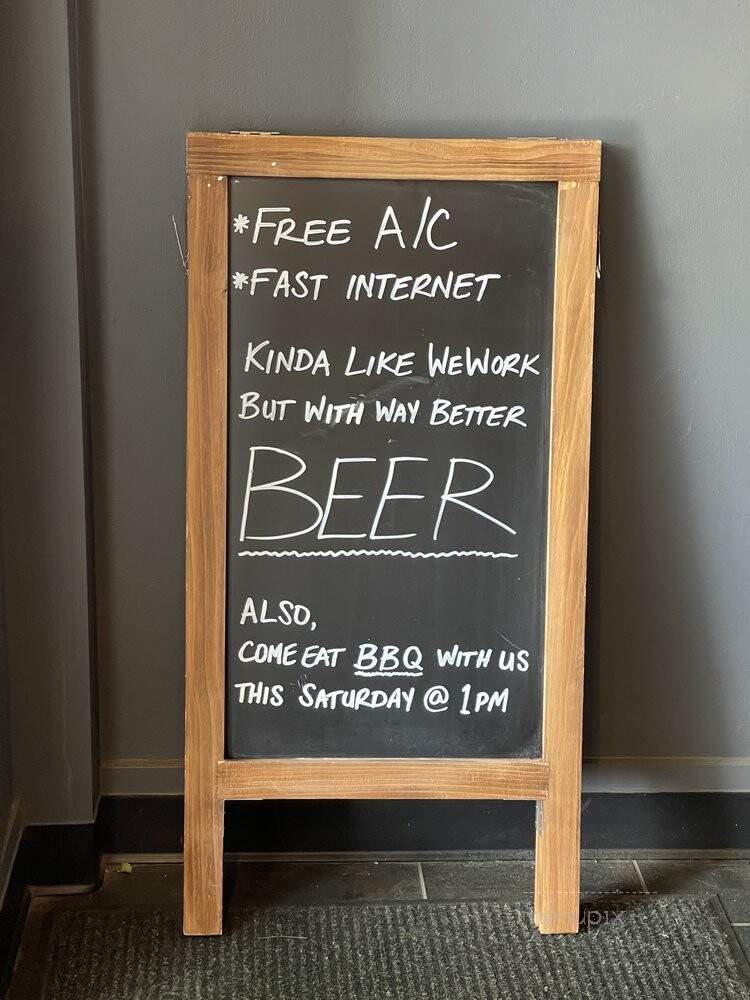 *FREE A/C
*FAST INTERNET
KINDA LIKE WEWORK
BUT WITH WAY BETTER
BEER
ALSO,
COME EAT BBQ WITH US
THIS SATURDAY @ 1PM